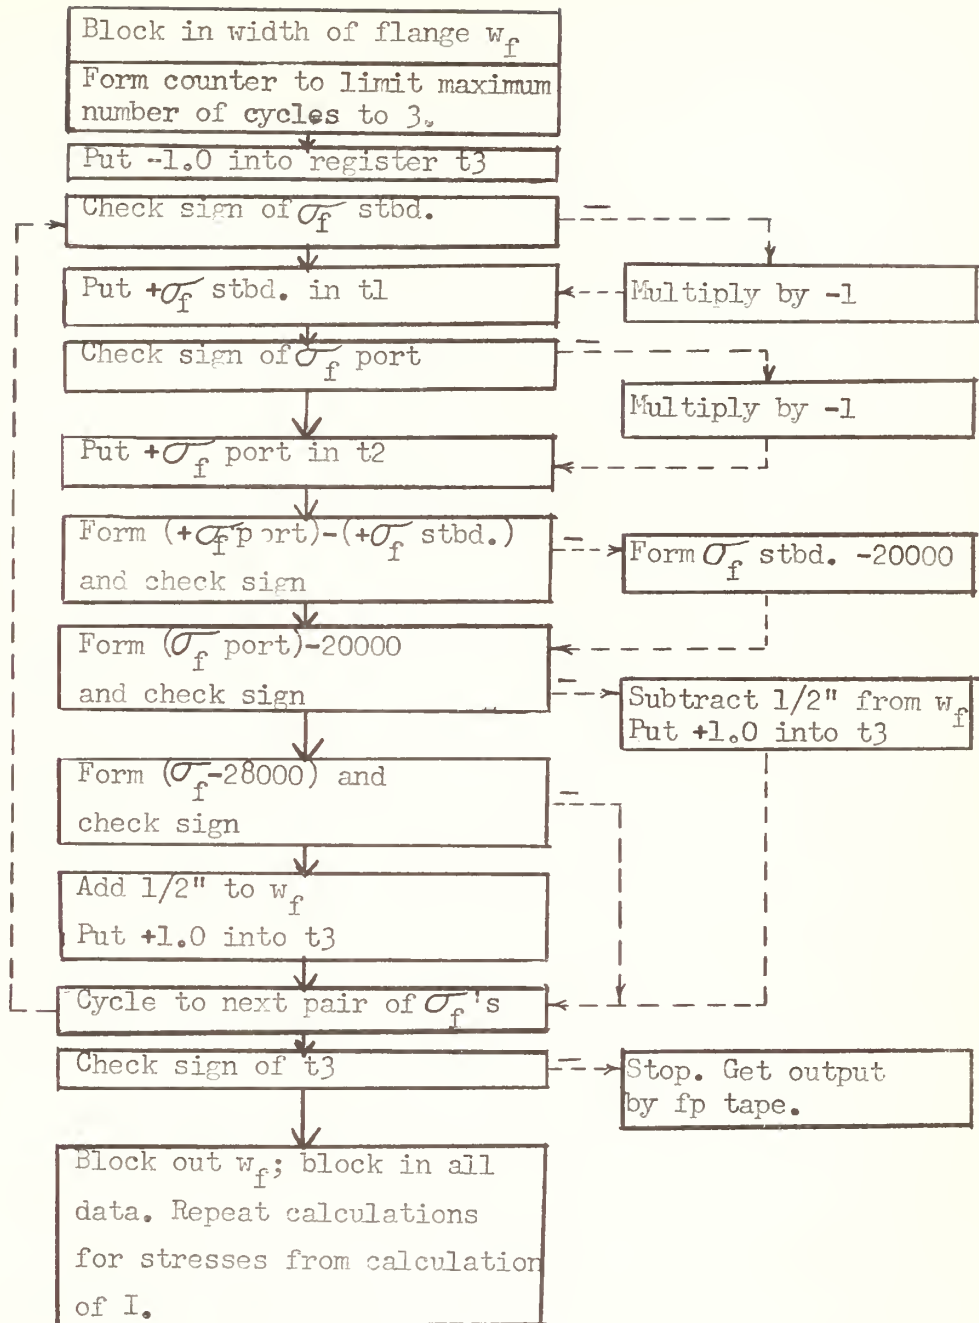 Block in width of flange w_f
Form counter to limit maximum
number of cycles to 3.
Put -1.0 into register t3
Check sign of σ_f stbd.
−
Put +σ_f stbd. in t1
Multiply by -1
Check sign of σ_f port
−
Multiply by -1
Put +σ_f port in t2
Form (+σ_f port)-(+σ_f stbd.)
and check sign
−
Form σ_f stbd. -20000
Form (σ_f port)-20000
and check sign
−
Subtract 1/2" from w_f
Put +1.0 into t3
Form (σ_f-28000) and
check sign
−
Add 1/2" to w_f
Put +1.0 into t3
Cycle to next pair of σ_f's
Check sign of t3
−
Stop. Get output
by fp tape.
Block out w_f; block in all
data. Repeat calculations
for stresses from calculation
of I.